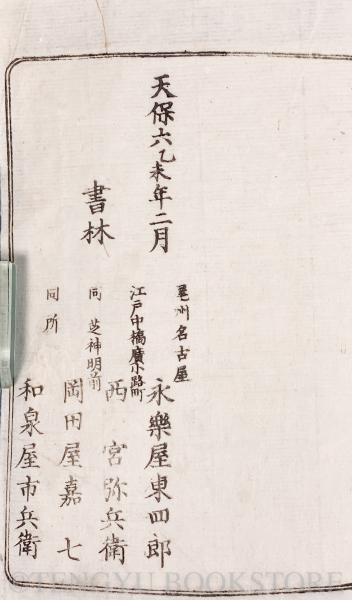 天保六乙未年二月
書林
尾州名古屋
永樂屋東四郎
江戸中橋廣小路町
西宮弥兵衛
同 芝神明前
岡田屋嘉七
同所
和泉屋市兵衛
©TENGYU BOOKSTORE